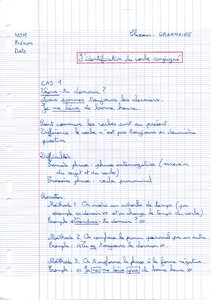 NOM
Prénom
Date
Classeur : GRAMMAIRE
L'identification du verbe conjugué
CAS 1
Viens-tu demain ?
Nous sommes toujours les derniers.
Je me lève de bonne heure.
Point commun : les verbes sont au présent
Différence : le verbe n'est pas toujours en deuxième
position
Difficultés
Première phrase : phrase interrogative (inversion
du sujet et du verbe)
Troisième phrase : verbe pronominal
Recettes
Méthode 1. On insère un adverbe de temps (par
exemple « demain » et on change le temps du verbe)
Exemple : « demain. »
Méthode 2. On remplace le pronom personnel par un autre
Exemple : toujours le dernier ».
Méthode 3. On transforme la phrase à la forme négative
Exemple : « Je ne me lève pas de bonne heure ».